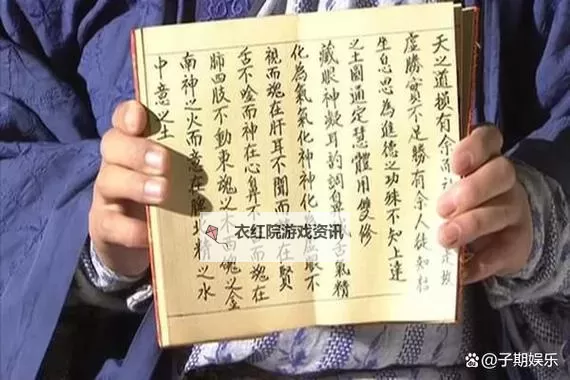 天之道損有余而
是故
虛勝實不足勝有余人徒知枯
坐息思為進德之功殊不知上達
之士圓通定慧體用雙修
藏眼神凝耳韵調鼻舌氣精
化為氣氣化神神化為虛眼不
視而魂在肝耳不聞而在賢
舌不唫而神在心鼻不而魄在
肺四肢不動東魂之木西魄之金
南神之火而意在脾北精之水
中意之土
衣红院游戏资讯
子期娱乐